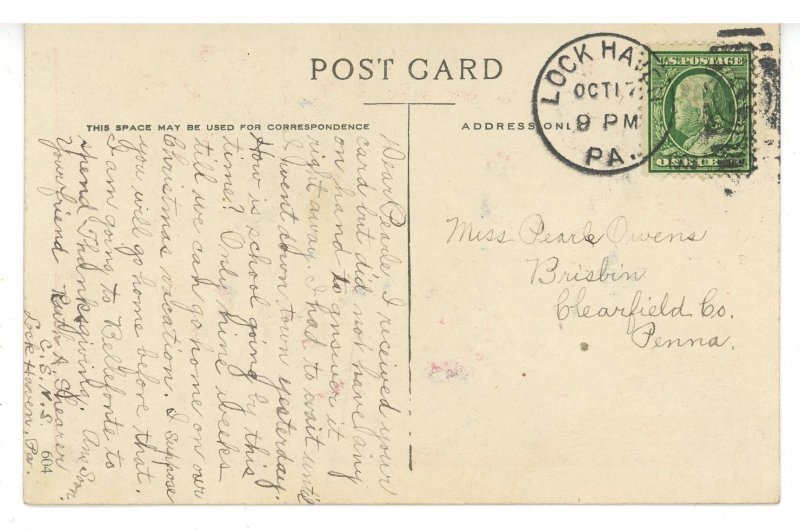 POST CARD
THIS SPACE MAY BE USED FOR CORRESPONDENCE
ADDRESS ONLY
LOCK HAVEN
OCT 17
9 PM
PA.
U.S. POSTAGE
ONE CENT
Miss Pearle Owens
Brisbin
Clearfield Co.
Penna.
Dear Pearle, I received your
card but did not have any
on hand to answer it
right away. I had to wait until
I went down town yesterday.
How is school going by this
time? Only nine weeks
till we can go home on our
Christmas vacation. I suppose
you will go home before that.
I am going to Bellefonte to
spend Thanksgiving. Ans Soon.
Your friend Ruth A Shearer
C.S.N.S.
Lock Haven, Pa.
604